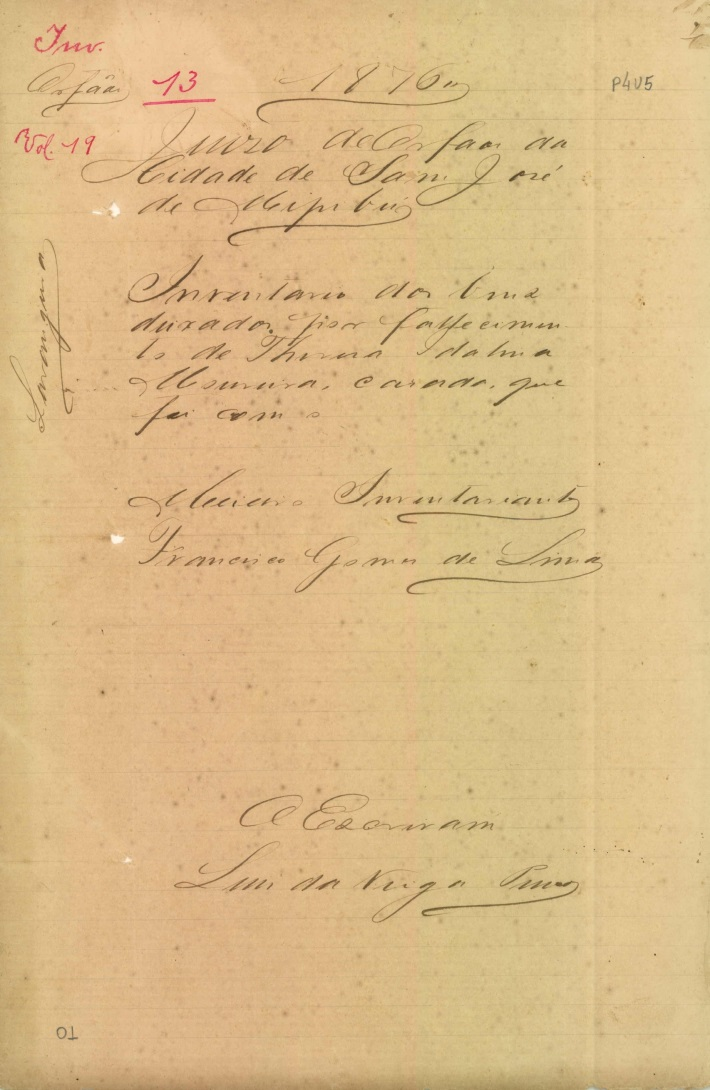 Inv.
Orfãos 13 1876
P4V5
Vol. 19
Juizo de Orfaos da
Cidade de Sam José
de Mipibú
Inventario dos bens
deixados por fallecimen
to de Thereza Idalina
Moureira, casada, que
foi com o
Meeiro Inventariante
Francisco Gomes de Lima
O Escrivam
Luis da Veiga
01